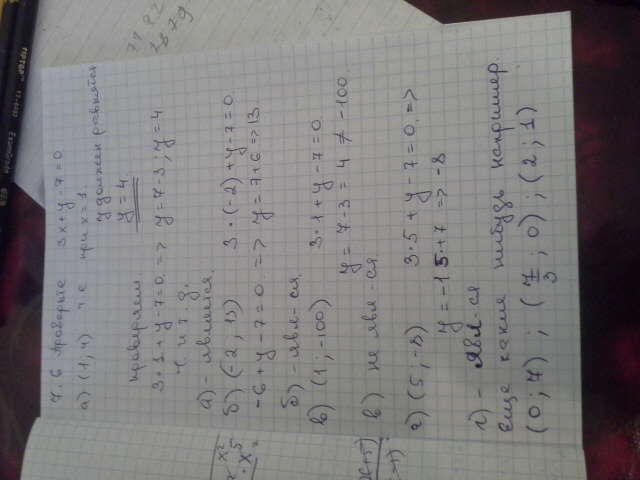 7.6 Проверьте 3x+y-7=0
а) (1; 4) т.е при x=1.
y должен равнятся
y=4.
проверяем
3·1+y-7=0 => y=7-3; y=4
ч. и т. д.
а) - является.
б) (-2; 13) 3·(-2)+y-7=0.
-6+y-7=0. => y=7+6 => 13.
б) - явл-ся.
в) (1; -100) 3·1+y-7=0.
y=7-3=4 ≠ -100.
в) не явл-ся.
г) (5; -8) 3·5+y-7=0. =>
y=-15+7 => -8
г) - явл-ся
Еще какие нибудь например.
(0; 7); (7/3; 0); (2; 1)